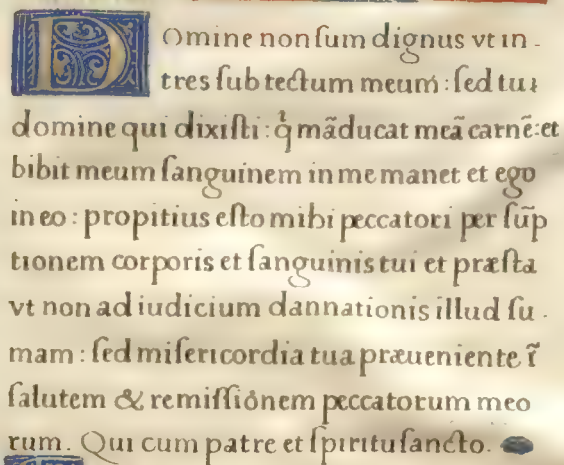 Domine non ſum dignus vt in-
tres ſub tectum meum: ſed tu
domine qui dixiſti: q̇ mãducat meã carnẽ: et
bibit meum ſanguinem in me manet et ego
in eo: propitius eſto mihi peccatori per ſũp
tionem corporis et ſanguinis tui et præſta
vt non ad iudicium dannationis illud ſu-
mam: ſed miſericordia tua præueniente ĩ
ſalutem & remiſſionem peccatorum meo
rum. Qui cum patre et ſpiritu ſancto.